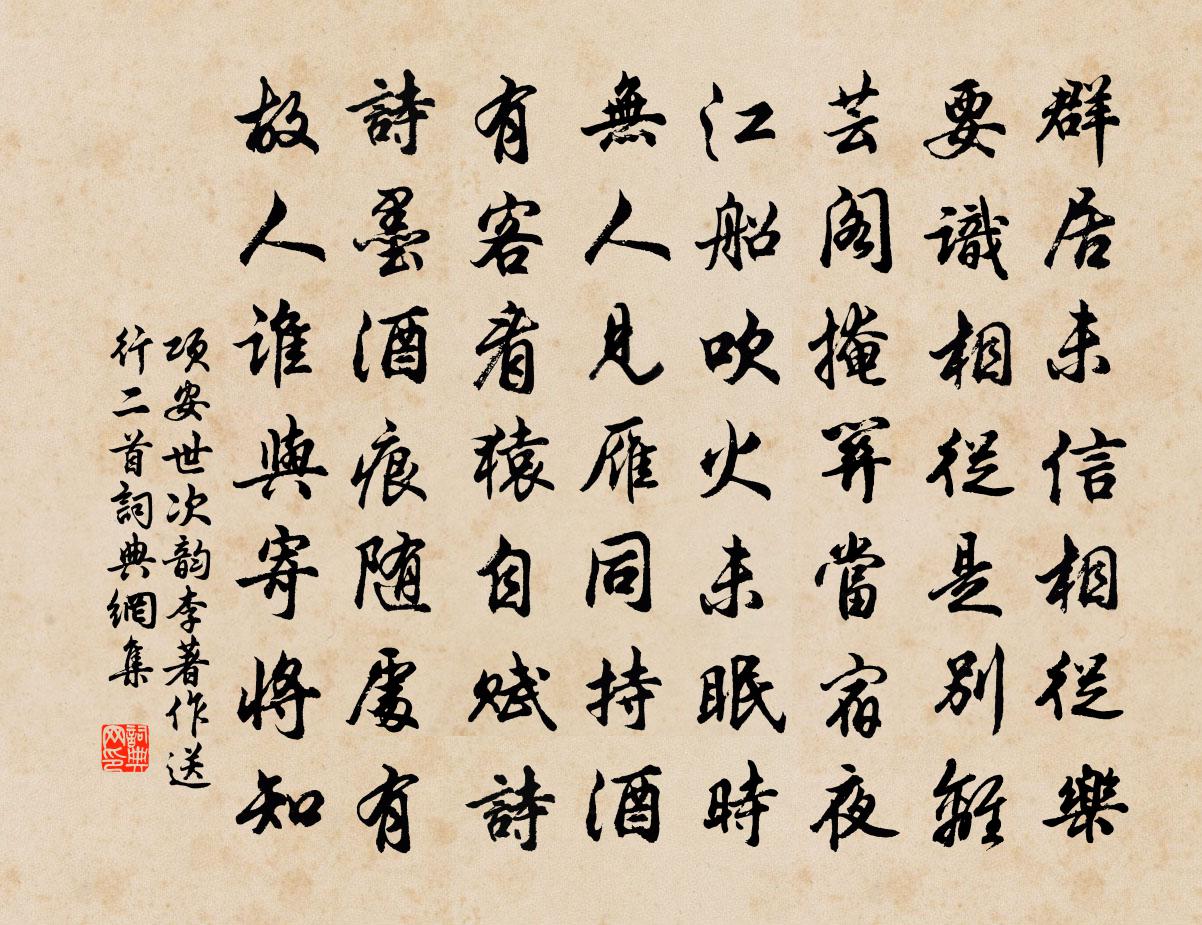 群居未信相從樂
要識相從是別離
芸閣掩關當宿夜
江船吹火未眠時
無人見雁同持酒
有客看猿自賦詩
詩墨酒痕隨處有
故人誰與寄將知
项安世次韵李著作送
行二首詞典網集
詞典网印